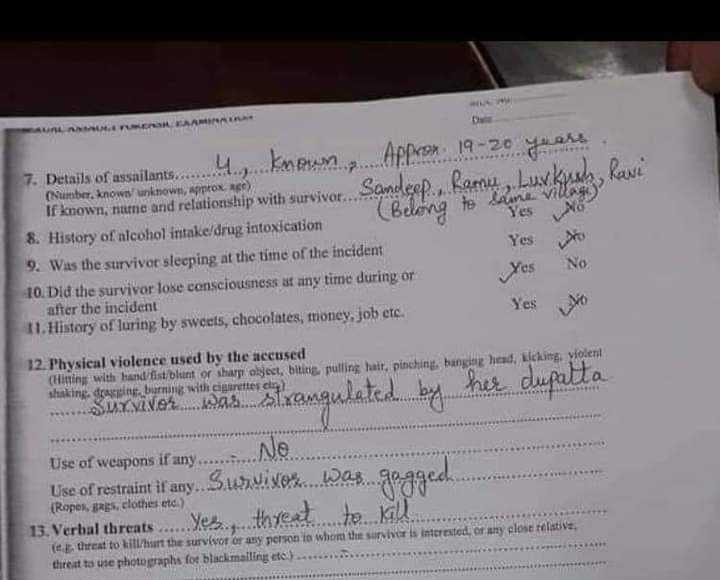 SEXUAL ASSAULT FORENSIC EXAMINATION
Date
7. Details of assailants......4, known, Approx. 19-20 years.
(Number, known/ unknown, approx. age)
If known, name and relationship with survivor...Sandeep, Ramu, Luvkush, Ravi
(Belong to same village)
8. History of alcohol intake/drug intoxication Yes ✓No
9. Was the survivor sleeping at the time of the incident Yes ✓No
10. Did the survivor lose consciousness at any time during or ✓Yes No
after the incident
11. History of luring by sweets, chocolates, money, job etc. Yes ✓No
12. Physical violence used by the accused
(Hitting with hand/fist/blunt or sharp object, biting, pulling hair, pinching, banging head, kicking, violent
shaking, dragging, burning with cigarettes etc)
Survivor was strangulated by her dupatta
Use of weapons if any......No
Use of restraint if any..Survivor was gagged
(Ropes, gags, clothes etc.)
13. Verbal threats......Yes, threat to kill
(e.g. threat to kill/hurt the survivor or any person in whom the survivor is interested, or any close relative,
threat to use photographs for blackmailing etc.)